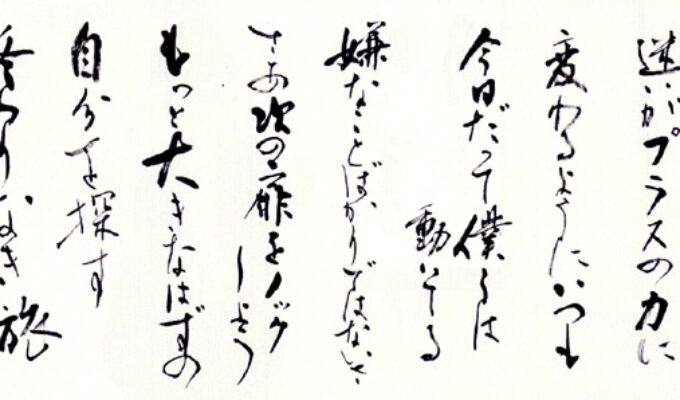 迷いがプラスの力に
変わるようにいつも
今日だって僕らは
動いてる
嫌なことばかりではないさ
さあ次の扉をノック
しよう
もっと大きなはずの
自分を探す
終わりなき旅